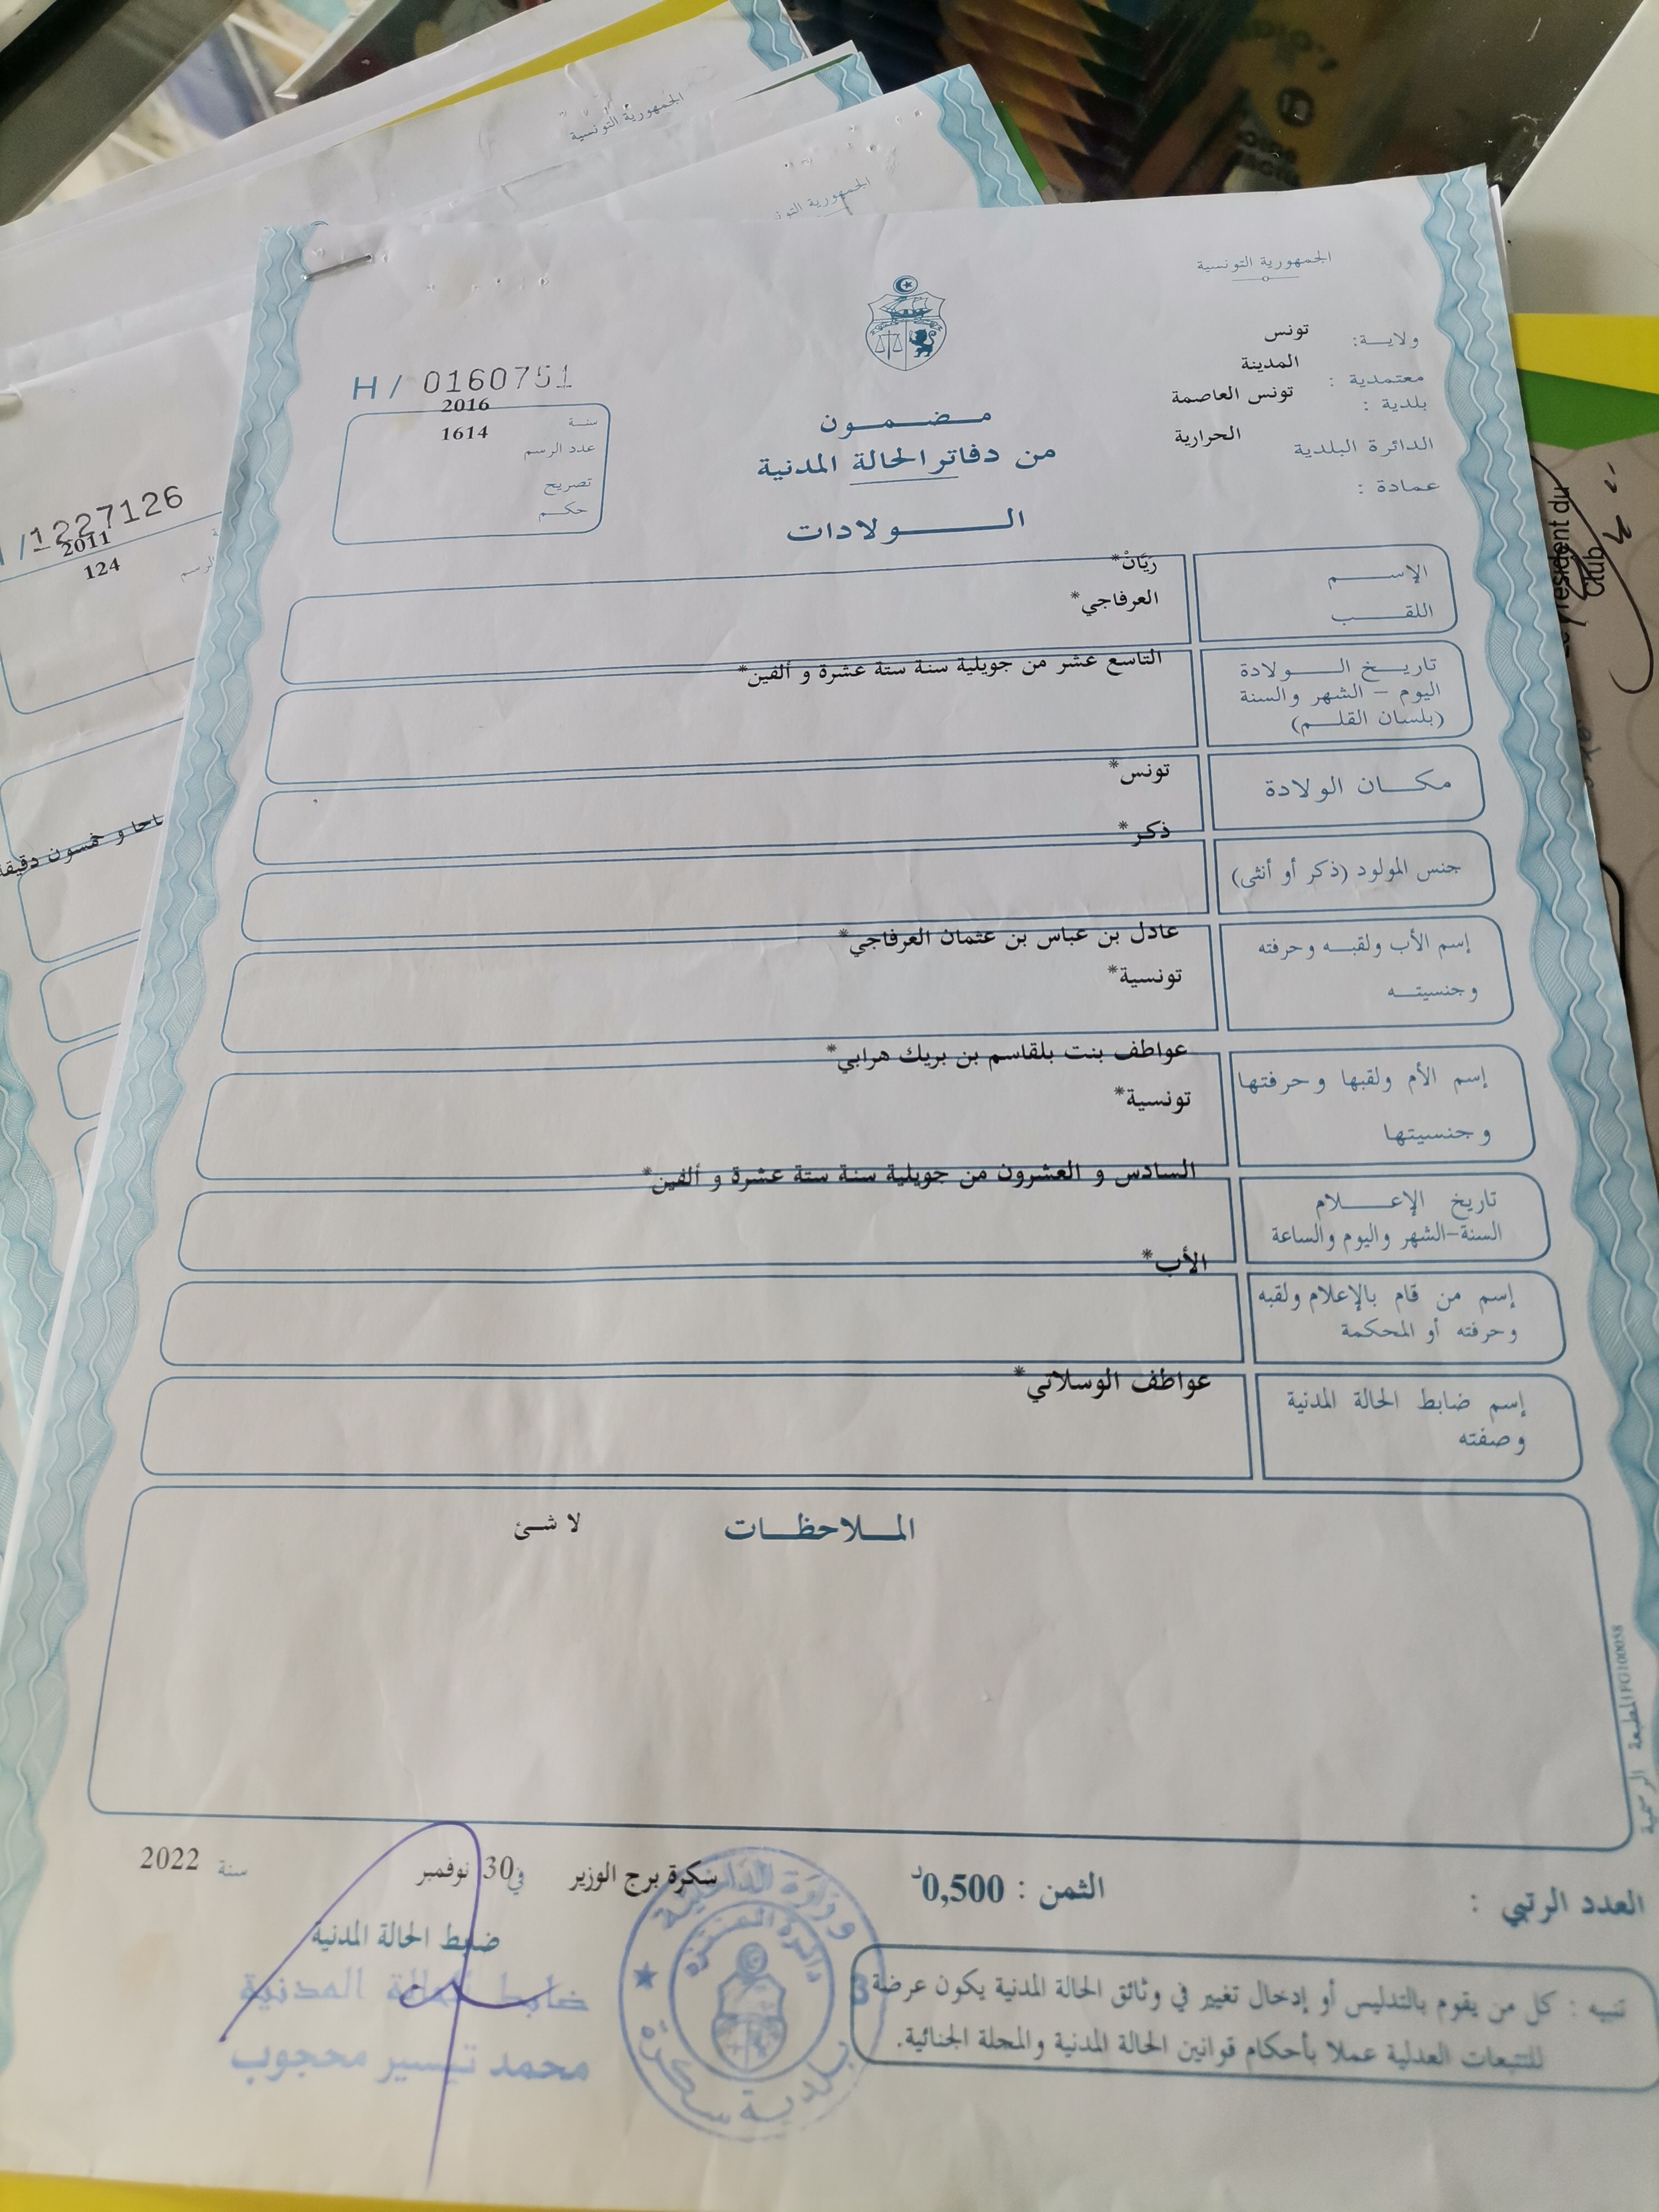 الجمهورية التونسية
الجمهورية
الجمهورية التونسية
ولاية: تونس
معتمدية : المدينة
بلدية : تونس العاصمة
الدائرة البلدية الحرارية
عمادة :
H / 0160751
سنة 2016
عدد الرسم 1614
تصريح
حكم
مضمون
من دفاتر الحالة المدنية
الولادات
الإسم رَيَّانْ*
اللقب العرفاجي*
تاريخ الولادة التاسع عشر من جويلية سنة ستة عشرة و ألفين*
اليوم - الشهر والسنة
(بلسان القلم)
مكان الولادة تونس*
جنس المولود (ذكر أو أنثى) ذكر*
إسم الأب ولقبه وحرفته عادل بن عباس بن عثمان العرفاجي*
وجنسيته تونسية*
إسم الأم ولقبها وحرفتها عواطف بنت بلقاسم بن بريك هرابي*
وجنسيتها تونسية*
تاريخ الإعلام السادس و العشرون من جويلية سنة ستة عشرة و ألفين*
السنة-الشهر واليوم والساعة
إسم من قام بالإعلام ولقبه الأب*
وحرفته أو المحكمة
إسم ضابط الحالة المدنية عواطف الوسلاتي*
وصفته
الملاحظات لا شئ
العدد الرتبي :
الثمن : 0,500د
سكرة برج الوزير في 30 نوفمبر سنة 2022
ضابط الحالة المدنية
ضابط الحالة المدنية
محمد تيسير محجوب
وزارة الداخلية
دائرة المنتزه
بلدية سكرة
3
تنبيه : كل من يقوم بالتدليس أو إدخال تغيير في وثائق الحالة المدنية يكون عرضة
للتتبعات العدلية عملا بأحكام قوانين الحالة المدنية والمجلة الجنائية.
المطبعة الرسمية
/1227126
2011
124
الرسم
و خمسون دقيقة
resident du
Club